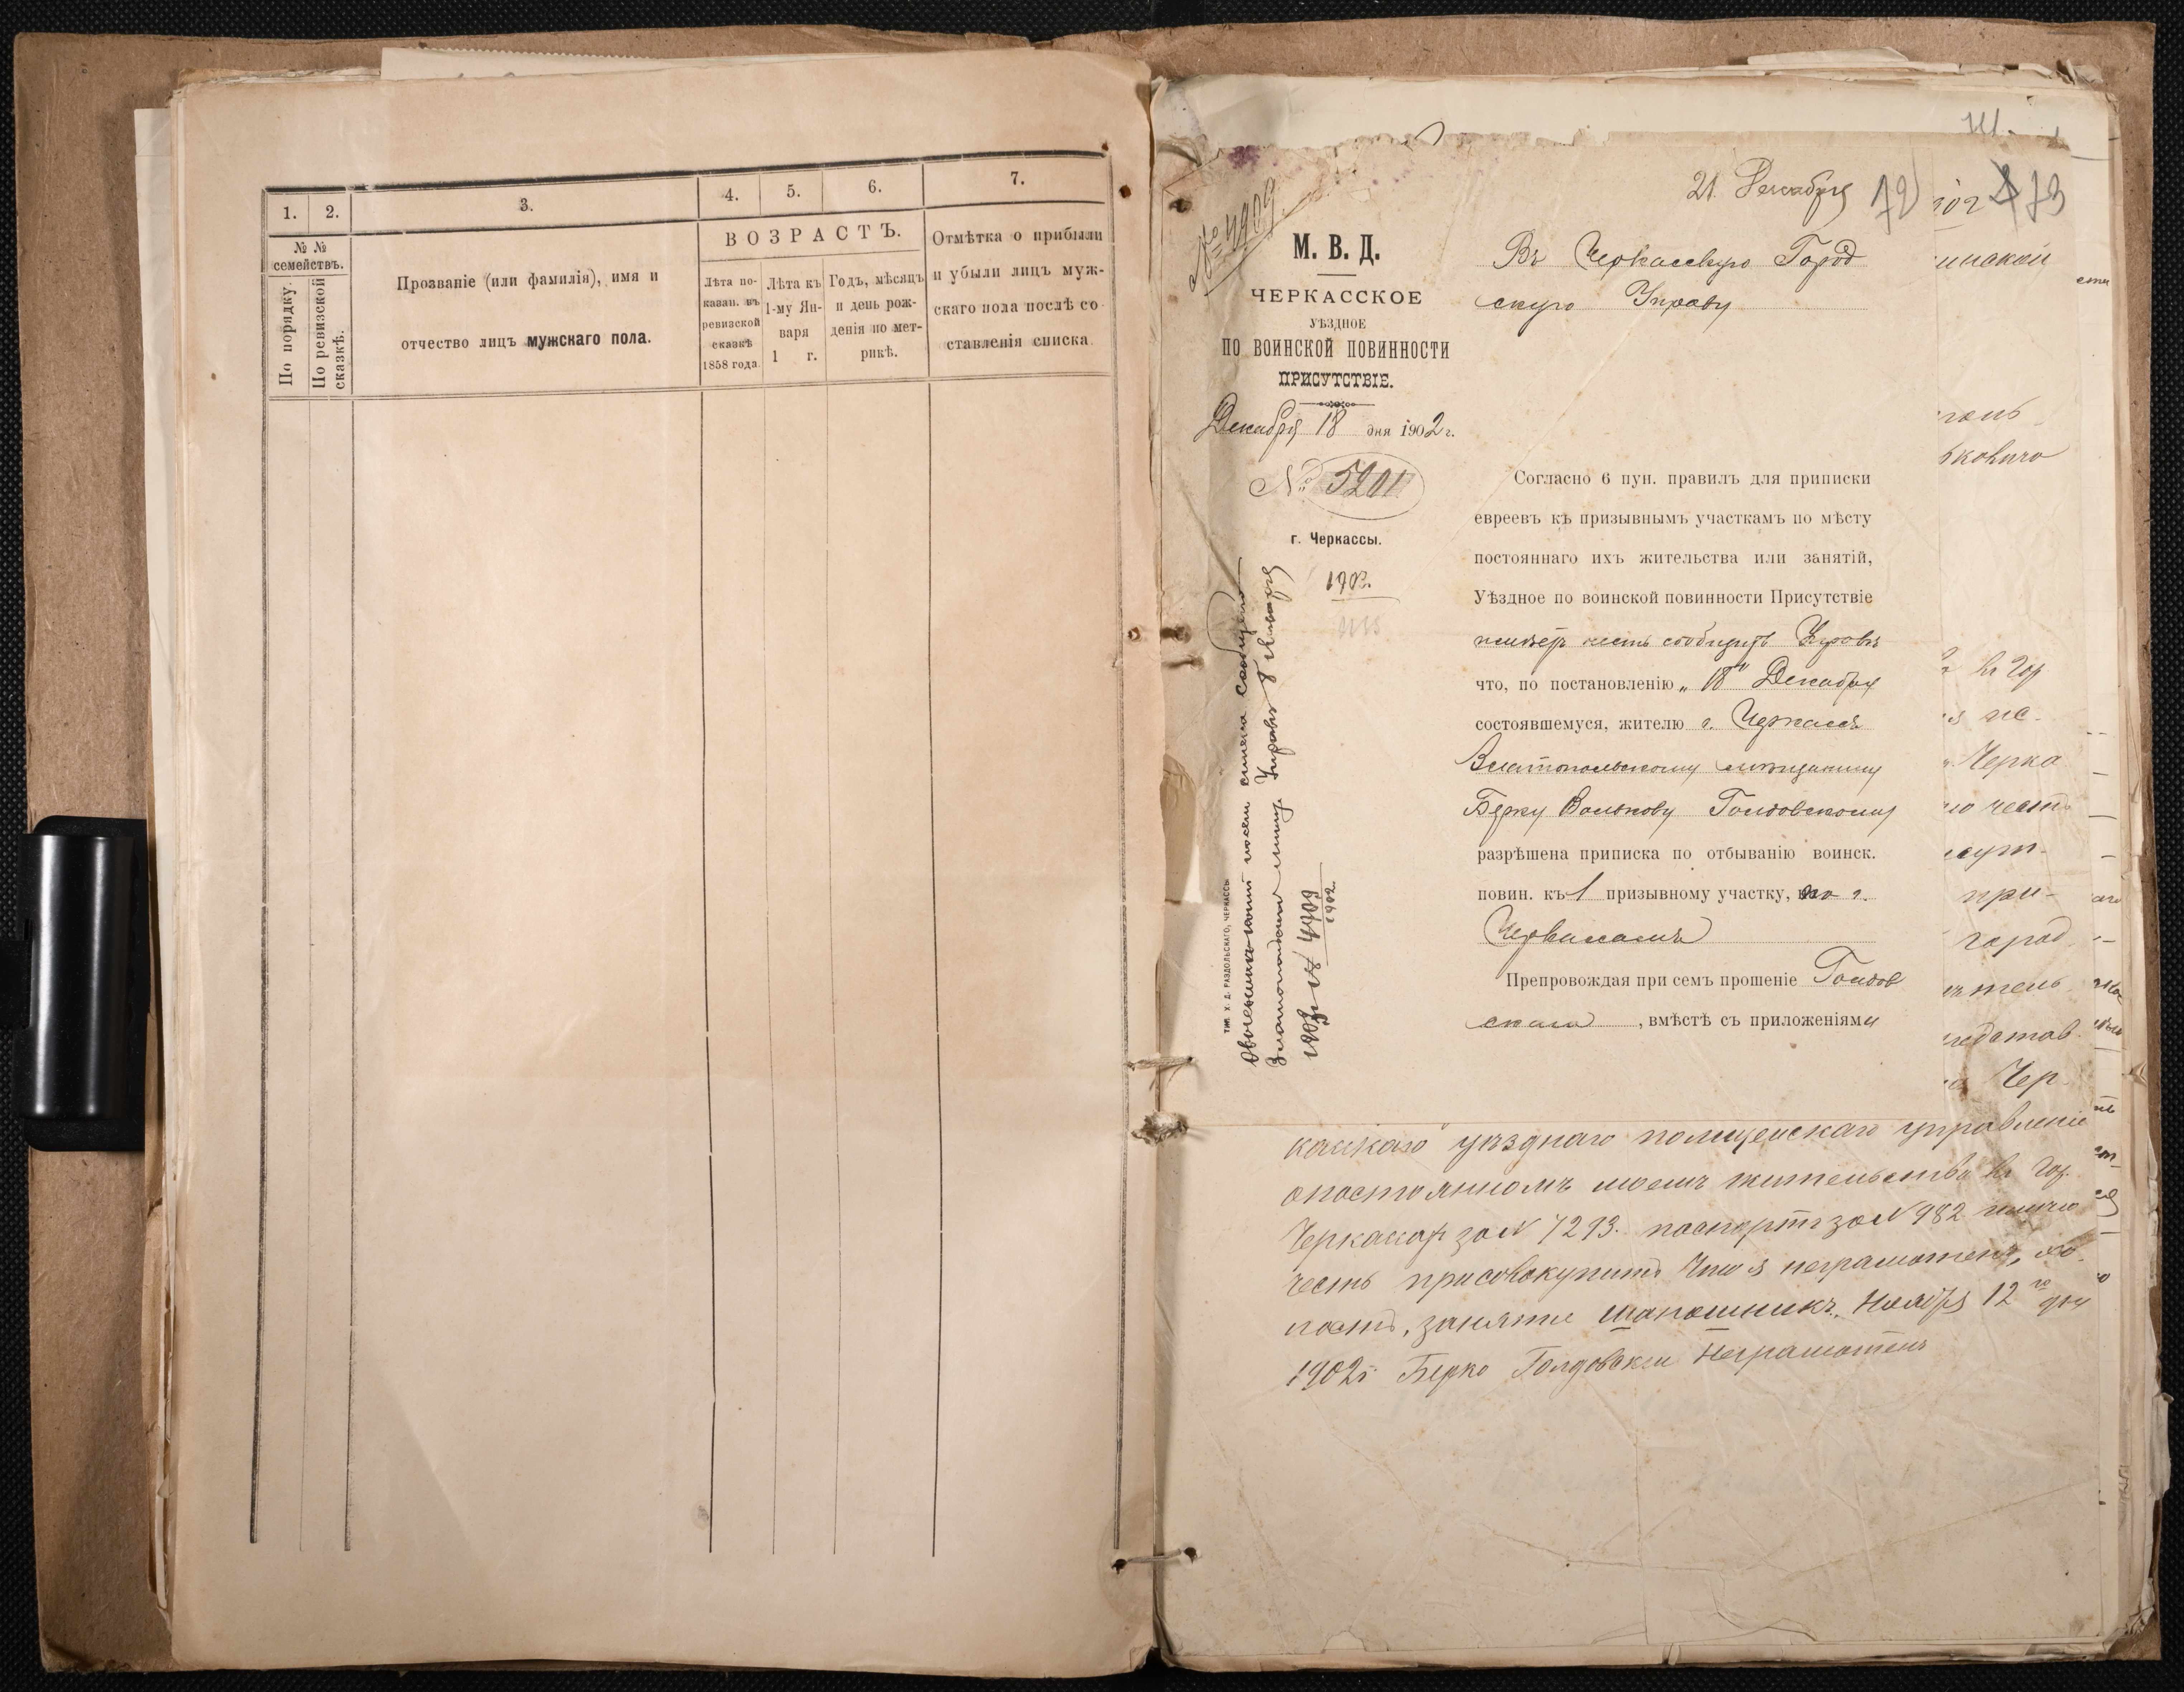 1.
2.
3.
4.
5.
6.
7.
№ №
семействъ.
По порядку.
По ревизской
сказкѣ.
Прозваніе (или фамилія), имя и
отчество лицъ мужскаго пола.
ВОЗРАСТЪ.
Лѣта по-
казан. въ
ревизской
сказкѣ
1858 года.
Лѣта къ
1-му Ян-
варя
1 г.
Годъ, мѣсяцъ
и день рож-
денія по мет-
рикѣ.
Отмѣтка о прибыли
и убыли лицъ муж-
скаго пола послѣ со-
ставленія списка.
21 Декабря
72
73
№ 4909
М. В. Д.
ЧЕРКАССКОЕ
УѢЗДНОЕ
ПО ВОИНСКОЙ ПОВИННОСТИ
ПРИСУТСТВІЕ.
Декабря 18 дня 1902 г.
№ 5201
г. Черкассы.
Въ Черкасскую Город
скую Управу
Согласно 6 пун. правилъ для приписки
евреевъ къ призывнымъ участкамъ по мѣсту
постояннаго ихъ жительства или занятій,
Уѣздное по воинской повинности Присутствіе
имѣетъ честь сообщить Управѣ
что, по постановленію „18" Декабря
состоявшемуся, жителю г. Черкассъ
Златопольскому мѣщанину
Берку Волькову Голдовскому
разрѣшена приписка по отбыванію воинск.
повин. къ 1 призывному участку, по г.
Черкассамъ
Препровождая при семъ прошеніе Голдов
скаго, вмѣстѣ съ приложеніями
ТИП. Х. Д. РАЗДОЛЬСКАГО, ЧЕРКАССЫ
Управѣ 8 Января
1903 г. № 4909
1902
каскаго уѣзднаго полицейскаго управленіе
о постоянномъ моемъ жительства въ гор.
Черкасахъ за № 7293. паспортъ за № 982 имѣю
честь присовокупить что я неграмотенъ,
занятіе шапошникъ. Ноября 12 го дня
1902 г. Берко Голдовски Неграмотенъ